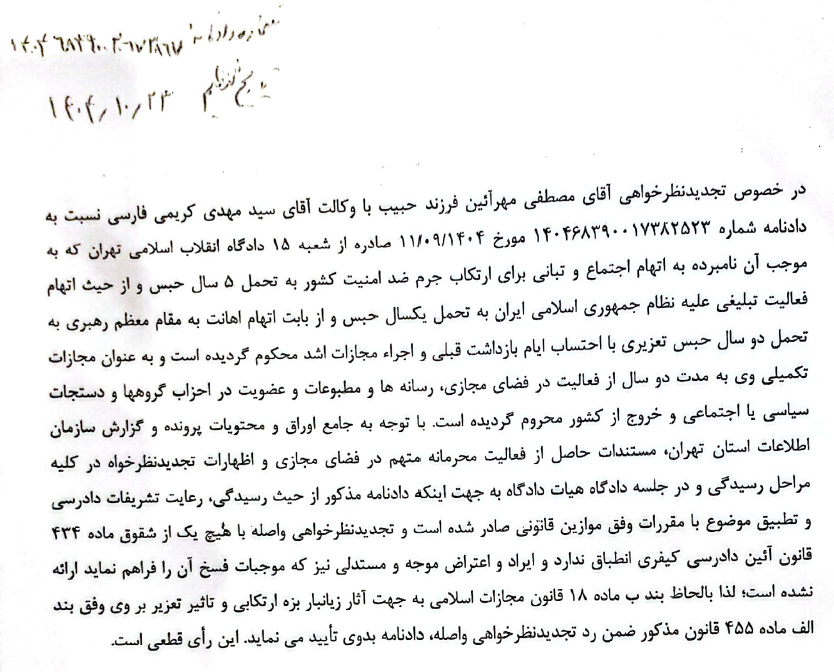 شماره دادنامه ۱۴۰۴۶۸۳۹۰۰۲۰۶۷۳۸۶۷
تاریخ تنظیم ۱۴۰۴/۱۰/۲۴
در خصوص تجدیدنظرخواهی آقای مصطفی مهرآئین فرزند حبیب با وکالت آقای سید مهدی کریمی فارسی نسبت به
دادنامه شماره ۱۴۰۴۶۸۳۹۰۰۱۷۳۸۲۵۲۳ مورخ ۱۱/۰۹/۱۴۰۴ صادره از شعبه ۱۵ دادگاه انقلاب اسلامی تهران که به
موجب آن نامبرده به اتهام اجتماع و تبانی برای ارتکاب جرم ضد امنیت کشور به تحمل ۵ سال حبس و از حیث اتهام
فعالیت تبلیغی علیه نظام جمهوری اسلامی ایران به تحمل یکسال حبس و از بابت اتهام اهانت به مقام معظم رهبری به
تحمل دو سال حبس تعزیری با احتساب ایام بازداشت قبلی و اجراء مجازات اشد محکوم گردیده است و به عنوان مجازات
تکمیلی وی به مدت دو سال از فعالیت در فضای مجازی، رسانه ها و مطبوعات و عضویت در احزاب گروهها و دستجات
سیاسی یا اجتماعی و خروج از کشور محروم گردیده است. با توجه به جامع اوراق و محتویات پرونده و گزارش سازمان
اطلاعات استان تهران، مستندات حاصل از فعالیت محرمانه متهم در فضای مجازی و اظهارات تجدیدنظرخواه در کلیه
مراحل رسیدگی و در جلسه دادگاه هیات دادگاه به جهت اینکه دادنامه مذکور از حیث رسیدگی، رعایت تشریفات دادرسی
و تطبیق موضوع با مقررات وفق موازین قانونی صادر شده است و تجدیدنظرخواهی واصله با هُیچ یک از شقوق ماده ۴۳۴
قانون آئین دادرسی کیفری انطباق ندارد و ایراد و اعتراض موجه و مستدلی نیز که موجبات فسخ آن را فراهم نماید ارائه
نشده است؛ لذا بالحاظ بند ب ماده ۱۸ قانون مجازات اسلامی به جهت آثار زیانبار بزه ارتکابی و تاثیر تعزیر بر وی وفق بند
الف ماده ۴۵۵ قانون مذکور ضمن رد تجدیدنظرخواهی واصله، دادنامه بدوی تأیید می نماید. این رأی قطعی است.